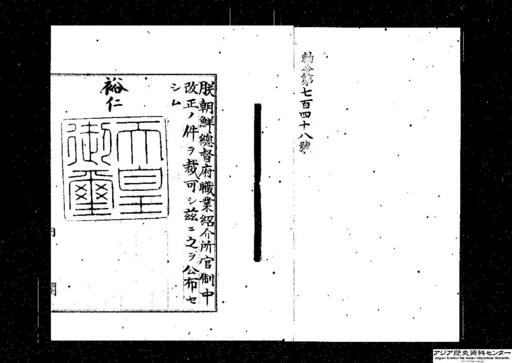 勅令第七百四十八號
朕朝鮮總督府職業紹介所官制中
改正ノ件ヲ裁可シ茲ニ之ヲ公布セ
シム
裕仁
天皇
御璽
内 閣
アジア歴史資料センター
Japan Center for Asian Historical Records